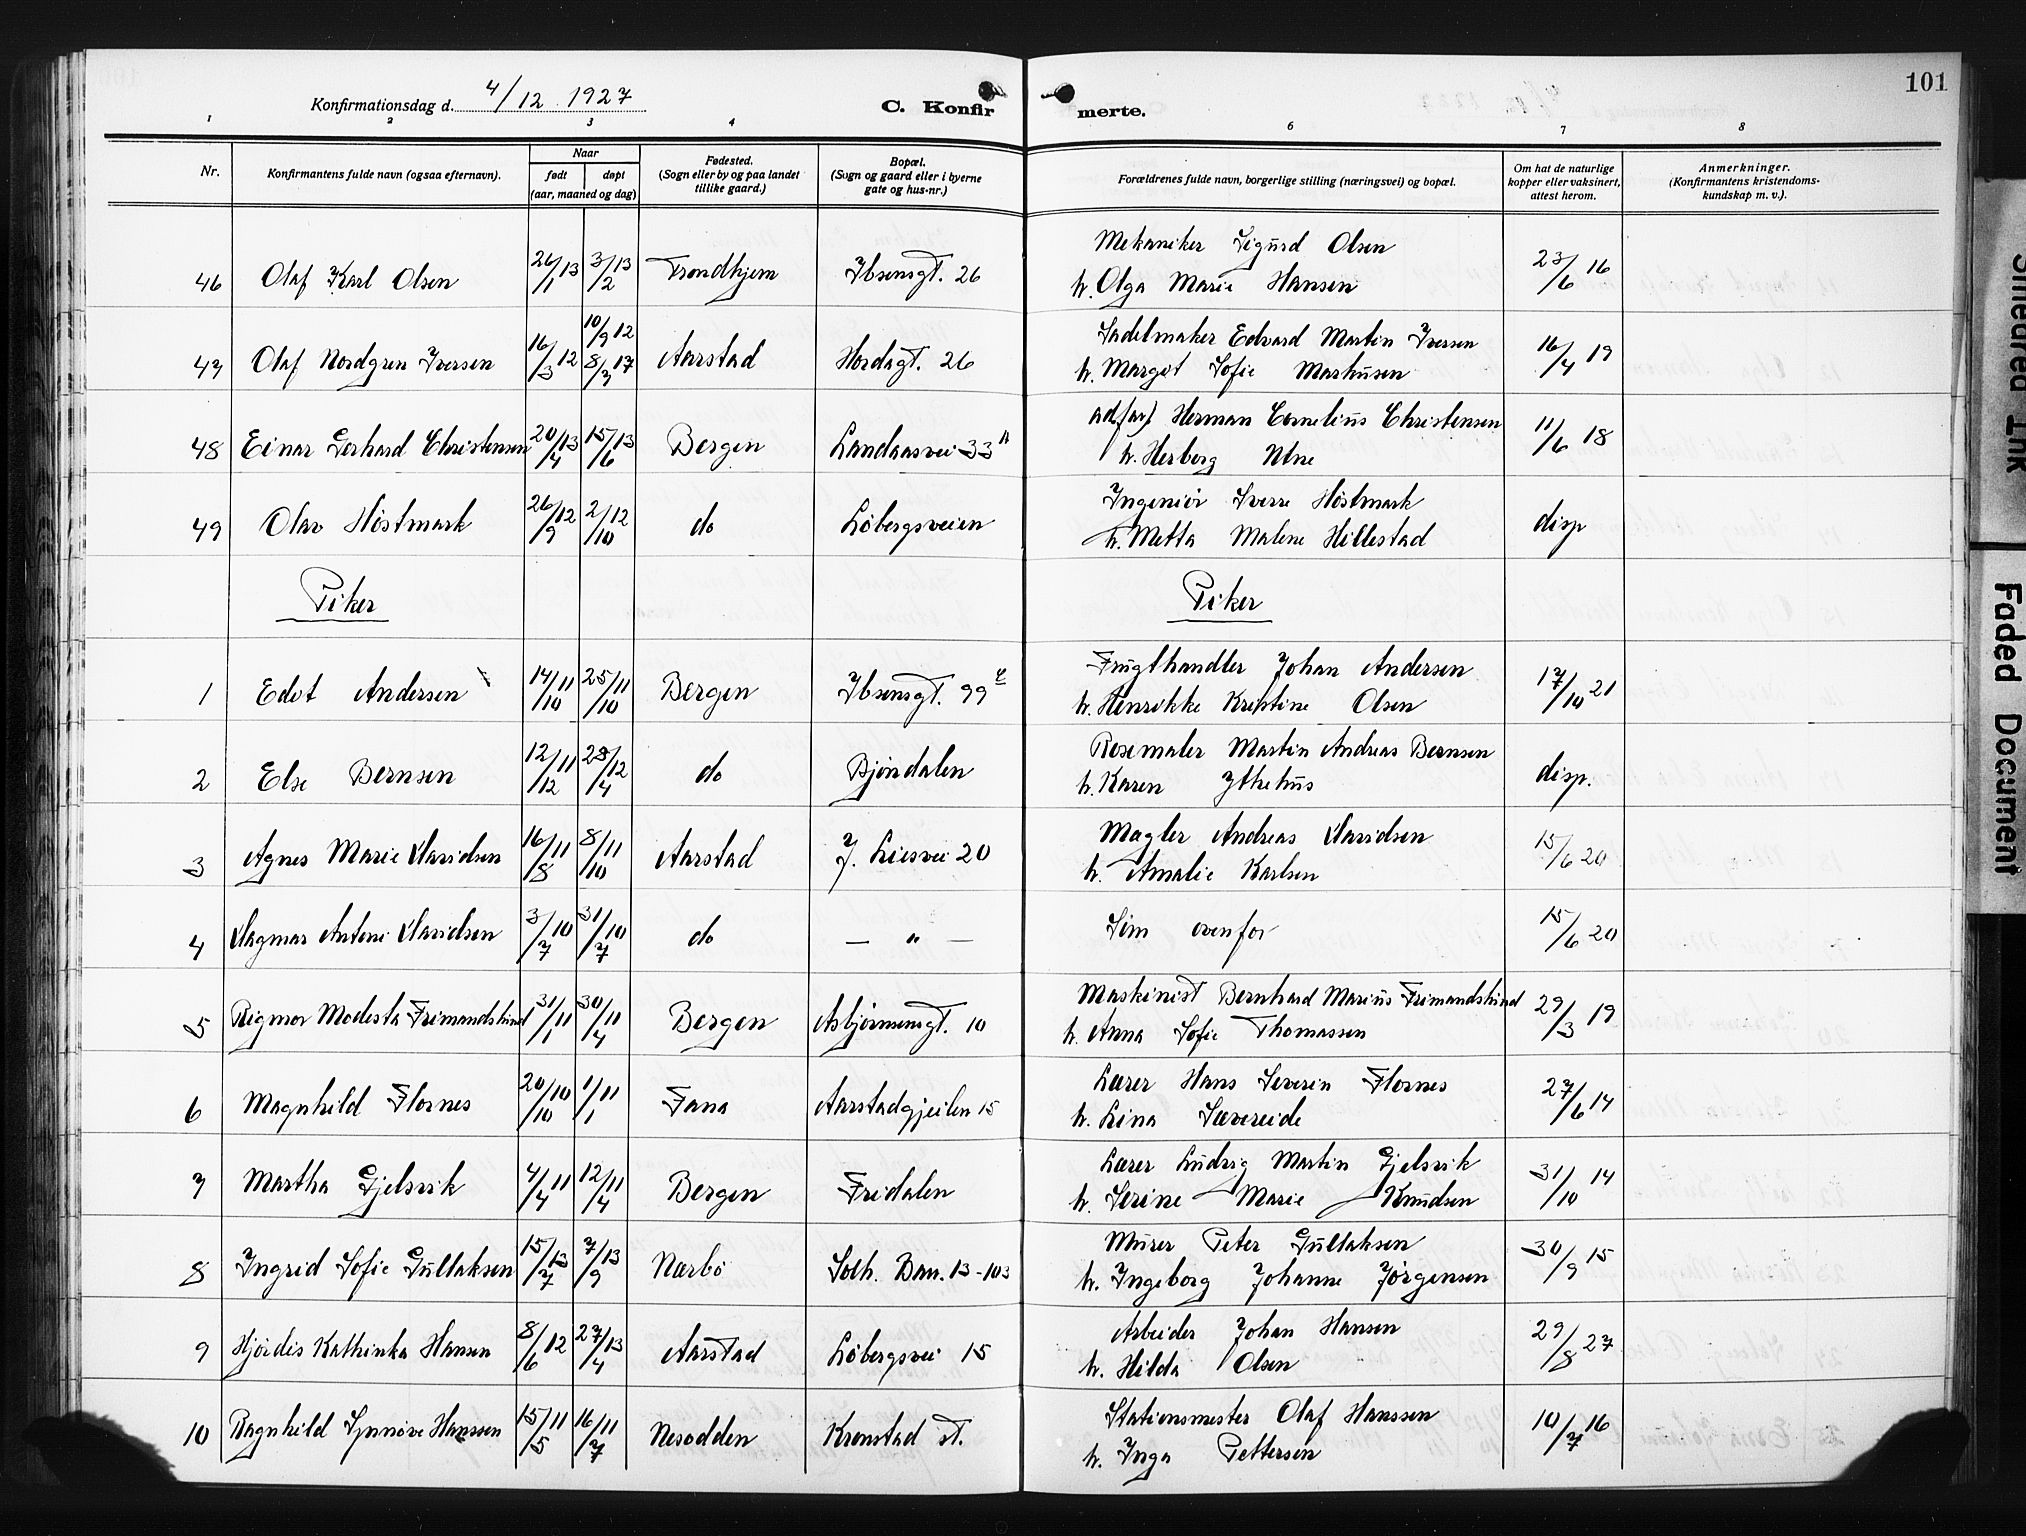 101
Konfirmationsdag d. 4/12 1927
C. Konfirmerte.
1 2 3 4 6 7 8
Nr.
Konfirmantens fulde navn (ogsaa efternavn).
Naar
født døpt
(aar, maaned og dag)
Fødested.
(Sogn eller by og paa landet
tillike gaard.)
Bopæl.
(Sogn og gaard eller i byerne
gate og hus-nr.)
Forældrenes fulde navn, borgerlige stilling (næringsvei) og bopæl.
Om hat de naturlige
kopper eller vaksinert,
attest herom.
Anmerkninger.
(Konfirmantens kristendoms-
kundskap m. v.).
46 Olaf Karl Olsen 26/1 13 3/2 13 Trondhjem Ibsensgt. 26 Mekaniker Sigurd Olsen 23/6 16
h. Olga Marie Hansen
47 Olaf Nordgren Iversen 16/3 12 10/9 12 8/3 17 Aarstad Hordagt. 26 Sadelmaker Edvard Martin Iversen 16/4 19
h. Margot Sofie Markusen
48 Einar Gerhard Christensen 20/4 13 15/6 13 Bergen Landaasvei 33 A ad.far) Herman Cornelius Christensen 11/6 18
h. Herborg Utne
49 Olav Høstmark 26/9 12 2/10 12 do Løbergsveien Ingeniør Sverre Høstmark disp
h. Metta Malene Hillestad
Piker Piker
1 Edot Andersen 14/10 11 25/10 11 Bergen Ibsensgt. 99 Frugthandler Johan Andersen 17/10 21
h. Henrikke Kristine Olsen
2 Else Bernsen 12/12 11 28/4 12 do Bjøndalen Rosemaler Martin Andreas Bernsen disp.
h. Karen Ythehus
3 Agnes Marie Davidsen 16/8 11 8/10 11 Aarstad J. Liesvei 20 Magler Andreas Davidsen 15/6 20
h. Amalie Karlsen
4 Dagmar Antoni Davidsen 3/7 10 31/7 10 do — " — Som ovenfor 15/6 20
5 Rigmor Modesta Frimandslund 31/1 11 30/4 11 Bergen Asbjørnsensgt. 10 Maskinist Bernhard Marius Frimandslund 29/3 19
h. Anna Sofie Thomassen
6 Magnhild Flornes 20/10 10 1/1 11 Fana Aarstadgjeilen 15 Lærer Hans Severin Flornes 27/6 14
h. Lina Sævereide
7 Martha Gjelsvik 4/4 11 12/4 11 Bergen Fridalen Lærer Ludvig Martin Gjelsvik 31/10 14
h. Serine Marie Knudsen
8 Ingrid Sofie Gullaksen 15/7 13 7/9 13 Nærbø Solh. Dan. 13-103 Murer Peter Gullaksen 30/9 15
h. Ingeborg Johanne Jørgensen
9 Hjørdis Kathinka Hansen 8/6 12 27/4 13 Aarstad Løbergsvei 15 Arbeider Johan Hansen 29/8 27
h. Hilda Olsen
10 Ragnhild Synnøve Hanssen 15/5 11 16/7 11 Nesodden Kronstad st. Stationsmester Olaf Hanssen 10/7 16
h. Inga Pettersen
Smeared Ink
Faded Document